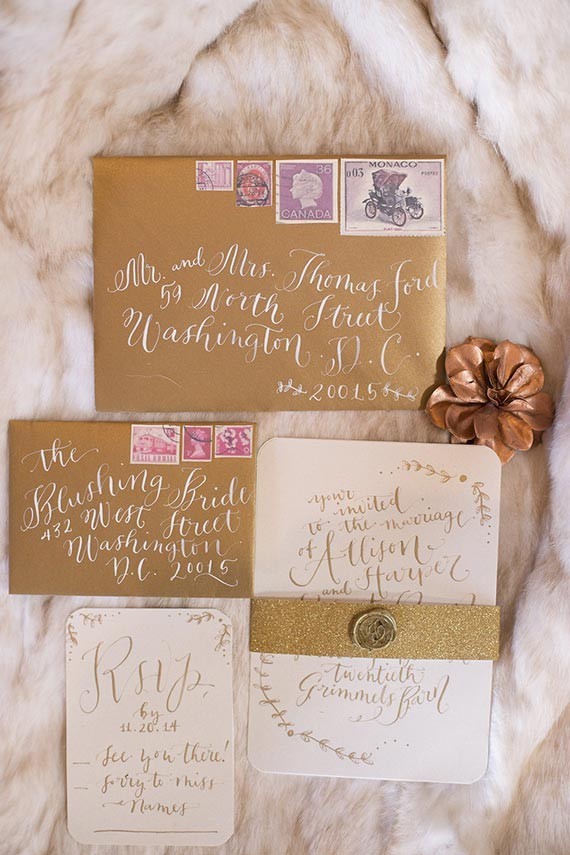 MONACO
0.03 POSTES
36
CANADA
Mr. and Mrs. Thomas Ford
59 North Street
Washington D.C.
20015
the
Blushing Bride
432 West Street
Washington
D.C. 20015
your
invited
to the marriage
of Allison
and Harper
twentieth
Grimmels Barn
Rsvp,
by
11.20.14
See you there!
Sorry to miss
Names